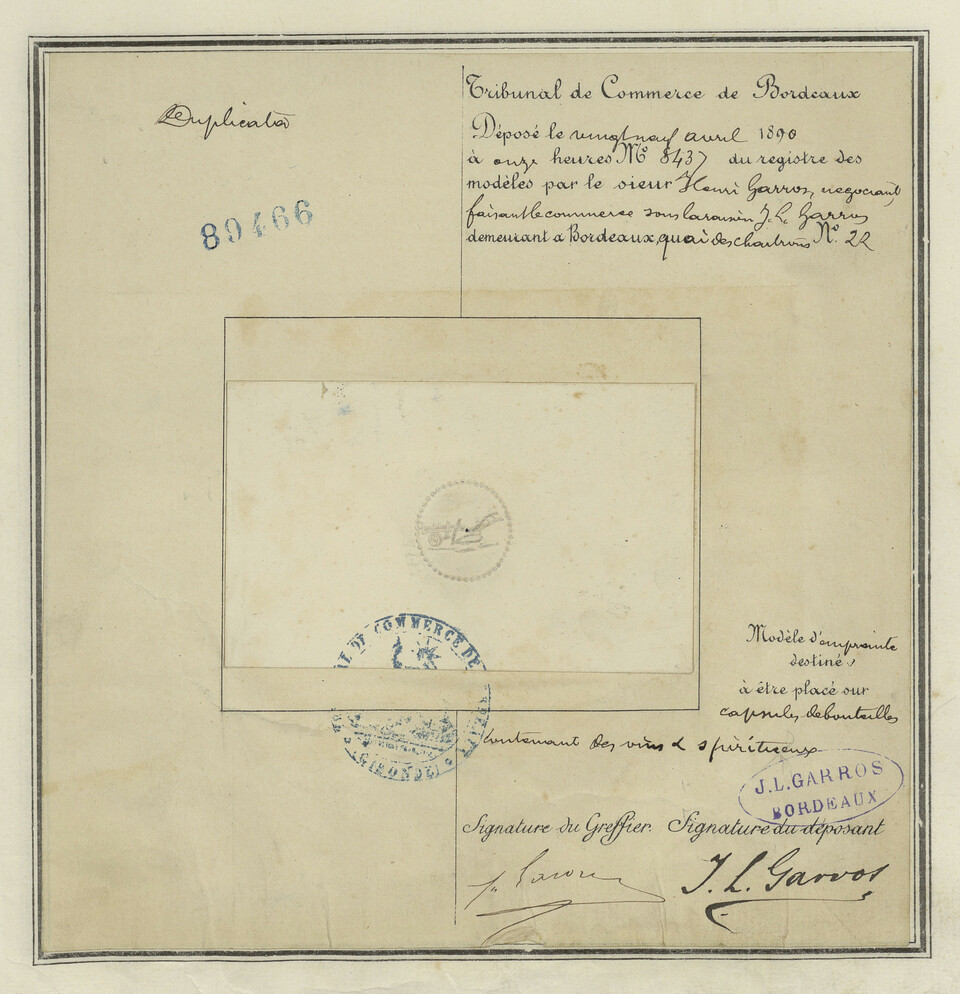 Duplicata
89466
Tribunal de Commerce de Bordeaux
Déposé le vingt neuf avril 1890
à onze heures No 8437 du registre des
modèles par le sieur Henri Garros, négociant
faisant le commerce sous la raison J. L. Garros
demeurant à Bordeaux, quai des chartrons No. 22
Modèle d'empreinte
destinés
à être placé sur
capsules de bouteilles
contenant des vins & spiritueux
J.L. GARROS
BORDEAUX
AL DE COMMERCE DE
(GIRONDE)
Signature du Greffier. Signature du déposant
J. L. Garros